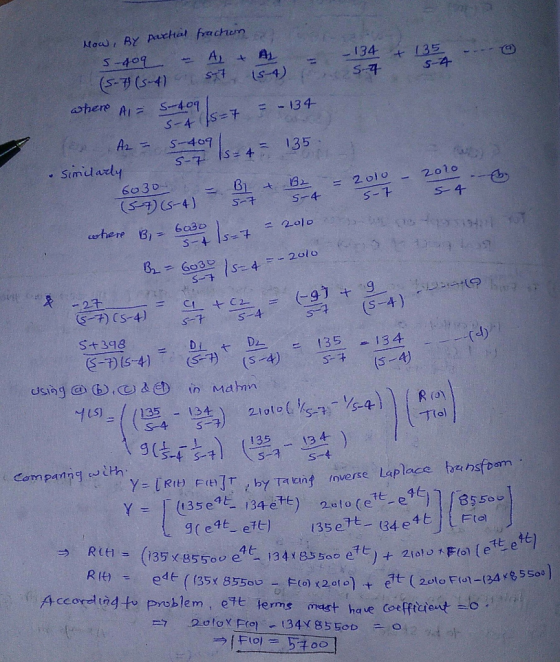 Now, BY partial fraction
S-409 / (S-7)(S-4) = A1 / S-7 + A2 / (S-4) = -134 / S-7 + 135 / S-4 ----- (a)
where A1 = S-409 / S-4 | S=7 = -134
A2 = S-409 / S-7 | S=4 = 135
• Similarly
6030 / (S-7)(S-4) = B1 / S-7 + B2 / S-4 = 2010 / S-7 - 2010 / S-4 --- (b)
where B1 = 6030 / S-4 | S=7 = 2010
B2 = 6030 / S-7 | S=4 = -2010
& -27 / (S-7)(S-4) = C1 / S-7 + C2 / S-4 = (-9) / S-7 + 9 / (S-4) ------- (c)
S+398 / (S-7)(S-4) = D1 / (S-7) + D2 / (S-4) = 135 / S-7 - 134 / (S-4) ------ (d)
using (a) (b), (c) & (d) in Matrix
Y(S) = ( (135 / S-4 - 134 / S-7) 21010 (1/S-7 - 1/S-4) ) ( R(0) )
( 9(1 / S-4 - 1 / S-7) (135 / S-7 - 134 / S-4) ) ( T(0) )
Comparing with.
Y = [R(t) F(t)]T, by Taking inverse Laplace transfrom.
Y = [ (135e4t - 134e7t) 2010 (e7t - e4t) ] [ 85500 ]
[ 9(e4t - e7t) 135e7t - 134e4t ] [ F(0) ]
⇒ R(t) = (135 x 85500 e4t - 134 x 85500 e7t) + 21010 x F(0) (e7t - e4t)
R(t) = e4t (135 x 85500 - F(0) x 2010) + e7t (2010 F(0) - 134 x 85500)
According to problem, e7t terms mast have coefficient = 0.
⇒ 2010 x F(0) - 134 x 85500 = 0
⇒ F(0) = 5700